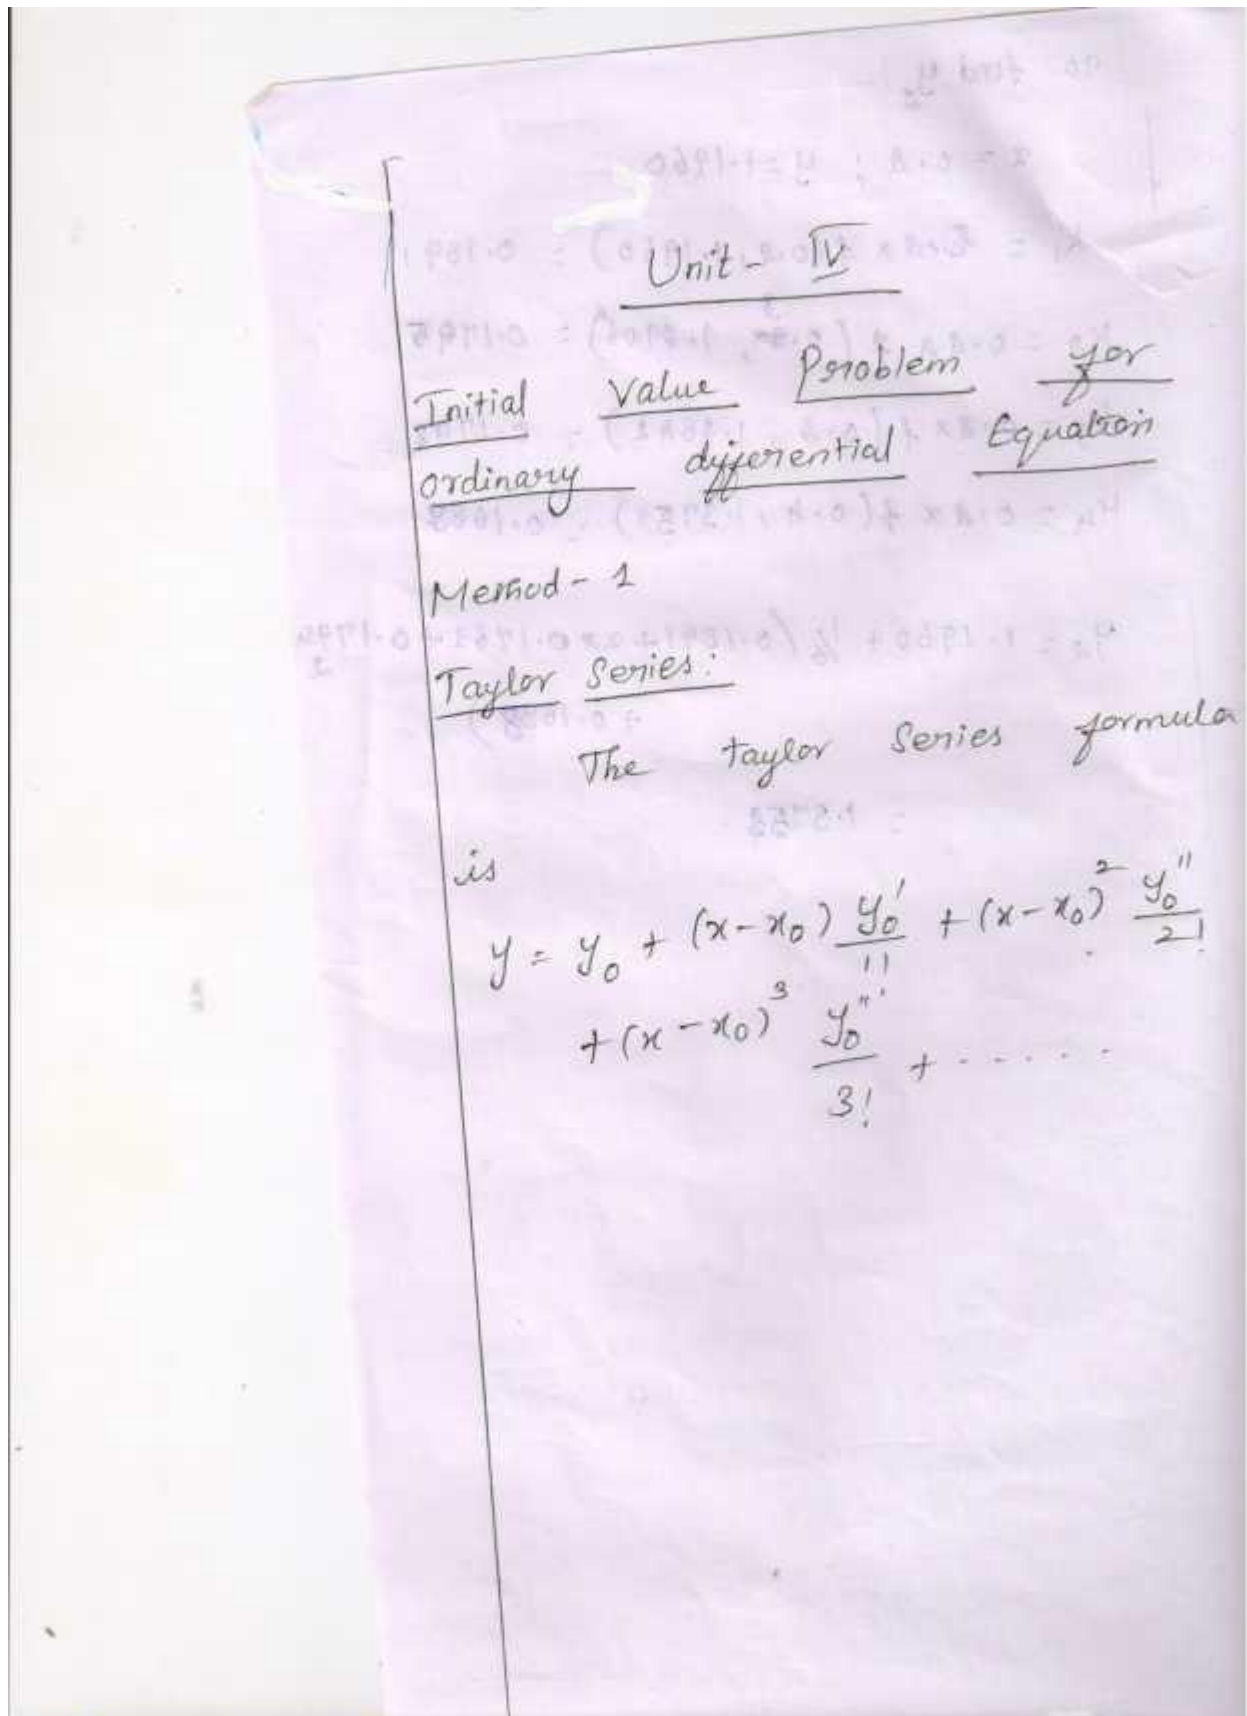 Unit - IV
Initial Value Problem for
ordinary differential Equation
Method - 1
Taylor Series:
The taylor Series formula
is
y = y₀ + (x - x₀) y₀'/1! + (x - x₀)² y₀''/2!
+ (x - x₀)³ y₀'''/3! + . . . . .